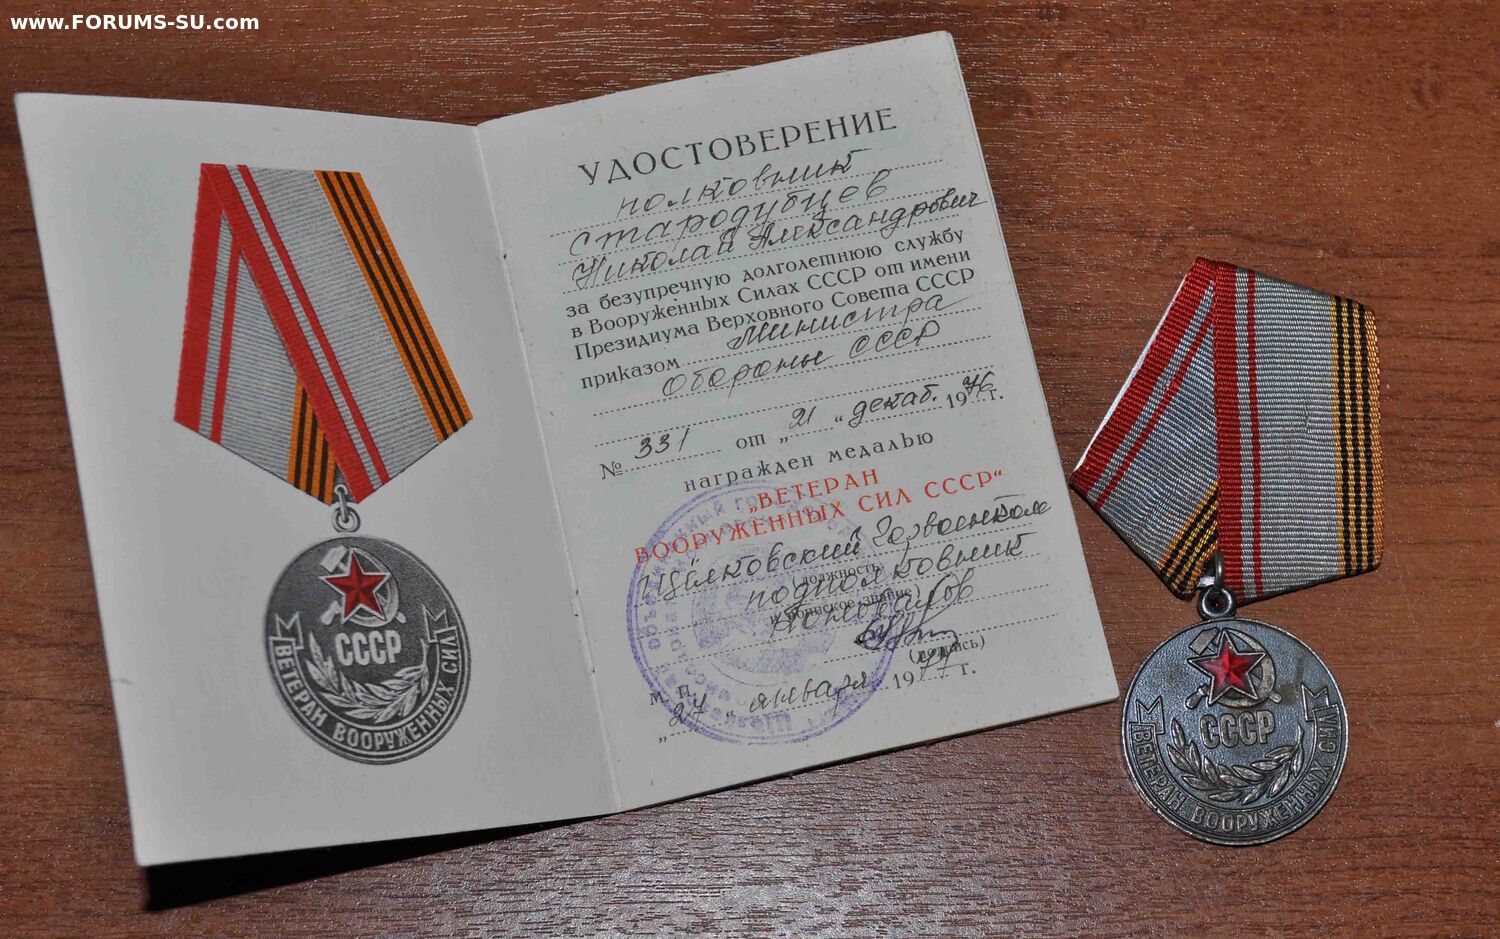 www.FORUMS-SU.com
СССР
ВЕТЕРАН ВООРУЖЕННЫХ СИЛ
УДОСТОВЕРЕНИЕ
полковник
Стародубцев
Николай Александрович
за безупречную долголетнюю службу
в Вооруженных Силах СССР от имени
Президиума Верховного Совета СССР
приказом Министра
Обороны СССР
№ 331 от „21“ декаб. 1976 г.
награжден медалью
„ВЕТЕРАН
ВООРУЖЕННЫХ СИЛ СССР“
Щёлковский Горвоенком
(должность)
подполковник
(воинское звание)
(подпись)
М. П.
„27“ января 1977 г.
СССР
ВЕТЕРАН ВООРУЖЕННЫХ СИЛ